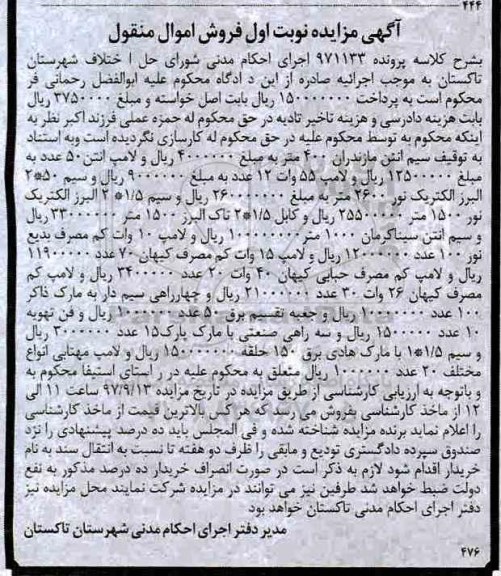 ۴۴۴
آگهی مزایده نوبت اول فروش اموال منقول
بشرح کلاسه پرونده ۹۷۱۱۳۳ اجرای احکام مدنی شورای حل ا ختلاف شهرستان
تاکستان به موجب اجرائیه صادره از این د ادگاه محکوم علیه ابوالفضل رحمانی فر
محکوم است به پرداخت ۱۵۰۰۰۰۰۰۰ ریال بابت اصل خواسته و مبلغ ۳۷۵۰۰۰۰ ریال
بابت هزینه دادرسی و هزینه تاخیر تادیه در حق محکوم له حمزه عملی فرزند اکبر نظر به
اینکه محکوم به توسط محکوم علیه در حق محکوم له کارسازی نگردیده است وبه استناد
به توقیف سیم آنتن مازندران ۴۰۰ متر به مبلغ ۴۰۰۰۰۰۰ ریال و لامپ آنتن۵۰ عدد به
مبلغ ۱۲۵۰۰۰۰۰ ریال و لامپ ۵۵ وات ۱۲ عدد به مبلغ ۹۰۰۰۰۰۰ ریال و سیم ۵۰*۲
البرز الکتریک نور ۲۶۰۰ متر به مبلغ ۲۶۰۰۰۰۰۰ ریال و سیم ۱/۵* ۲ البرز الکتریک
نور ۱۵۰۰ متر ۲۵۵۰۰۰۰۰ ریال و کابل ۱/۵*۲ تاک البرز ۱۵۰۰ متر ۳۳۰۰۰۰۰۰ ریال
و سیم آنتن سیناکرمان ۱۰۰۰ متر ۱۰۰۰۰۰۰۰ ریال و لامپ ۱۰ وات کم مصرف بدیع
نور ۱۰۰ عدد ۱۲۰۰۰۰۰۰ ریال و لامپ ۱۵ وات کم مصرف کیهان ۷۰ عدد ۱۱۹۰۰۰۰۰
ریال و لامپ کم مصرف حبابی کیهان ۴۰ وات ۲۰ عدد ۳۴۰۰۰۰۰ ریال و لامپ کم
مصرف کیهان ۲۶ وات ۳۰ عدد ۲۱۰۰۰۰۰ ریال و چهارراهی سیم دار به مارک ذاکر
۱۰۰ عدد ۱۰۰۰۰۰۰۰ ریال و جعبه تقسیم برق ۵۰ عدد ۱۰۰۰۰۰۰ ریال و فن تهویه
۱۰ عدد ۱۵۰۰۰۰۰ ریال و سه راهی صنعتی با مارک پارک۱۵ عدد ۳۰۰۰۰۰۰ ریال
و سیم ۱/۵*۱ با مارک هادی برق ۱۵۰ حلقه ۱۵۰۰۰۰۰۰ ریال و لامپ مهتابی انواع
مختلف ۲۰ عدد ۱۰۰۰۰۰۰ ریال متعلق به محکوم علیه در ر استای استیفا محکوم به
و باتوجه به ارزیابی کارشناسی از طریق مزایده در تاریخ مزایده ۹۷/۹/۱۳ ساعت ۱۱ الی
۱۲ از ماخذ کارشناسی بفروش می رسد که هر کس بالاترین قیمت از ماخذ کارشناسی
را اعلام نماید برنده مزایده شناخته شده و فی المجلس باید ده درصد پیشنهادی را نزد
صندوق سپرده دادگستری تودیع و مابقی را ظرف دو هفته تا نسبت به انتقال سند به نام
خریدار اقدام شود لازم به ذکر است در صورت انصراف خریدار ده درصد مذکور به نفع
دولت ضبط خواهد شد طرفین نیز می توانند در مزایده شرکت نمایند محل مزایده نیز
دفتر اجرای احکام مدنی تاکستان خواهد بود
مدیر دفتر اجرای احکام مدنی شهرستان تاکستان
۴۷۶